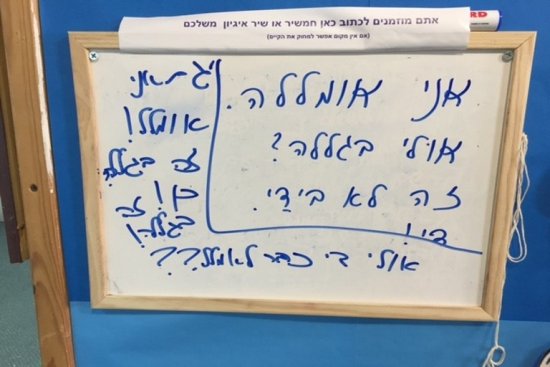 אתם מוזמנים לכתוב כאן חמשיר או שיר איגיון משלכם
(אם אין מקום אפשר למחוק את הקיים)
אני אומללה.
אולי בגללה?
זה לא בידַי.
די!
גם אני
אומלל!
זה בגללה
כן! זה
בגללה!
אולי די כבר לאמלל??